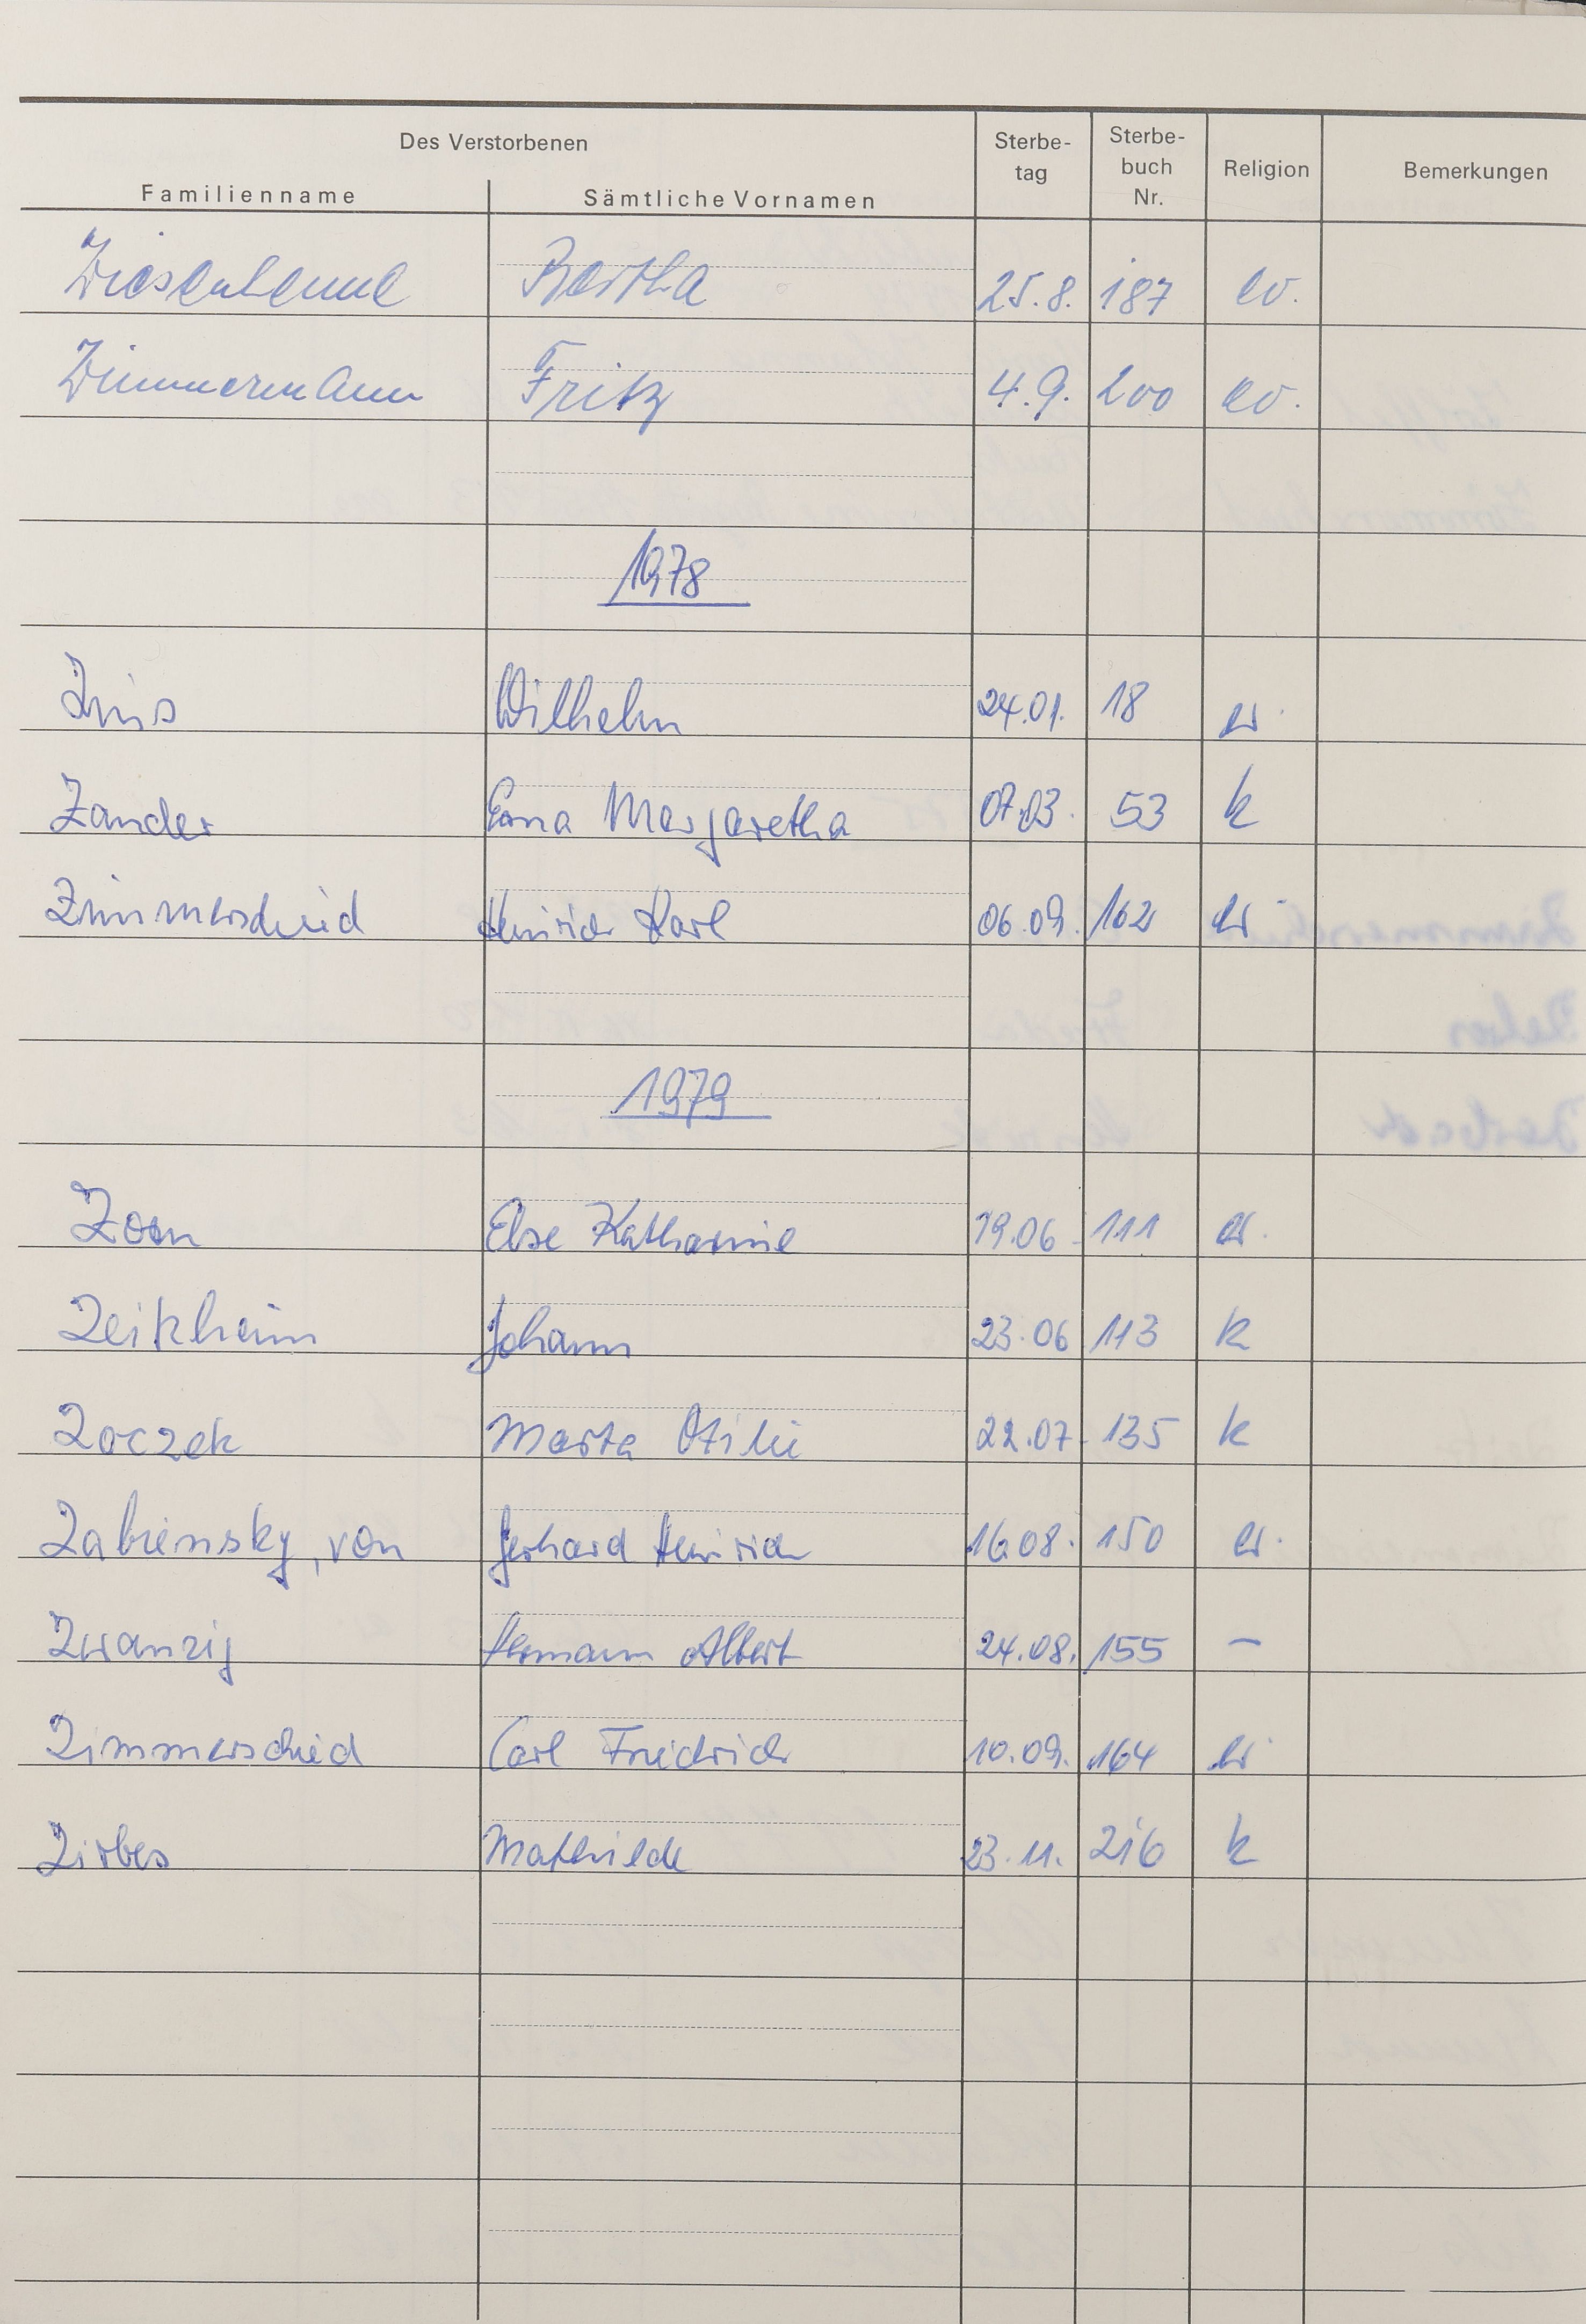 Des Verstorbenen
Familienname Sämtliche Vornamen Sterbe-tag Sterbe-buch Nr. Religion Bemerkungen
Bertha 25.8. 187 ev.
Zimmermann Fritz 4.9. 200 ev.
1978
Wilhelm 24.01. 18 ev.
Zander Erna Margaretha 07.03. 53 k
Zimmerscheid Heinrich Karl 06.09. 162 ev
1979
Zorn Else Katharine 19.06 111 ev.
Zeitzheim Johann 23.06 113 k
Zoczek Marta Otilie 22.07 135 k
Zabiensky, von Gerhard Heinrich 16.08. 150 ev.
Zwanzig Hermann Albert 24.08. 155 –
Zimmerschied Carl Friedrich 10.09. 164 ev
Zirbes Mathilde 23.11. 216 k